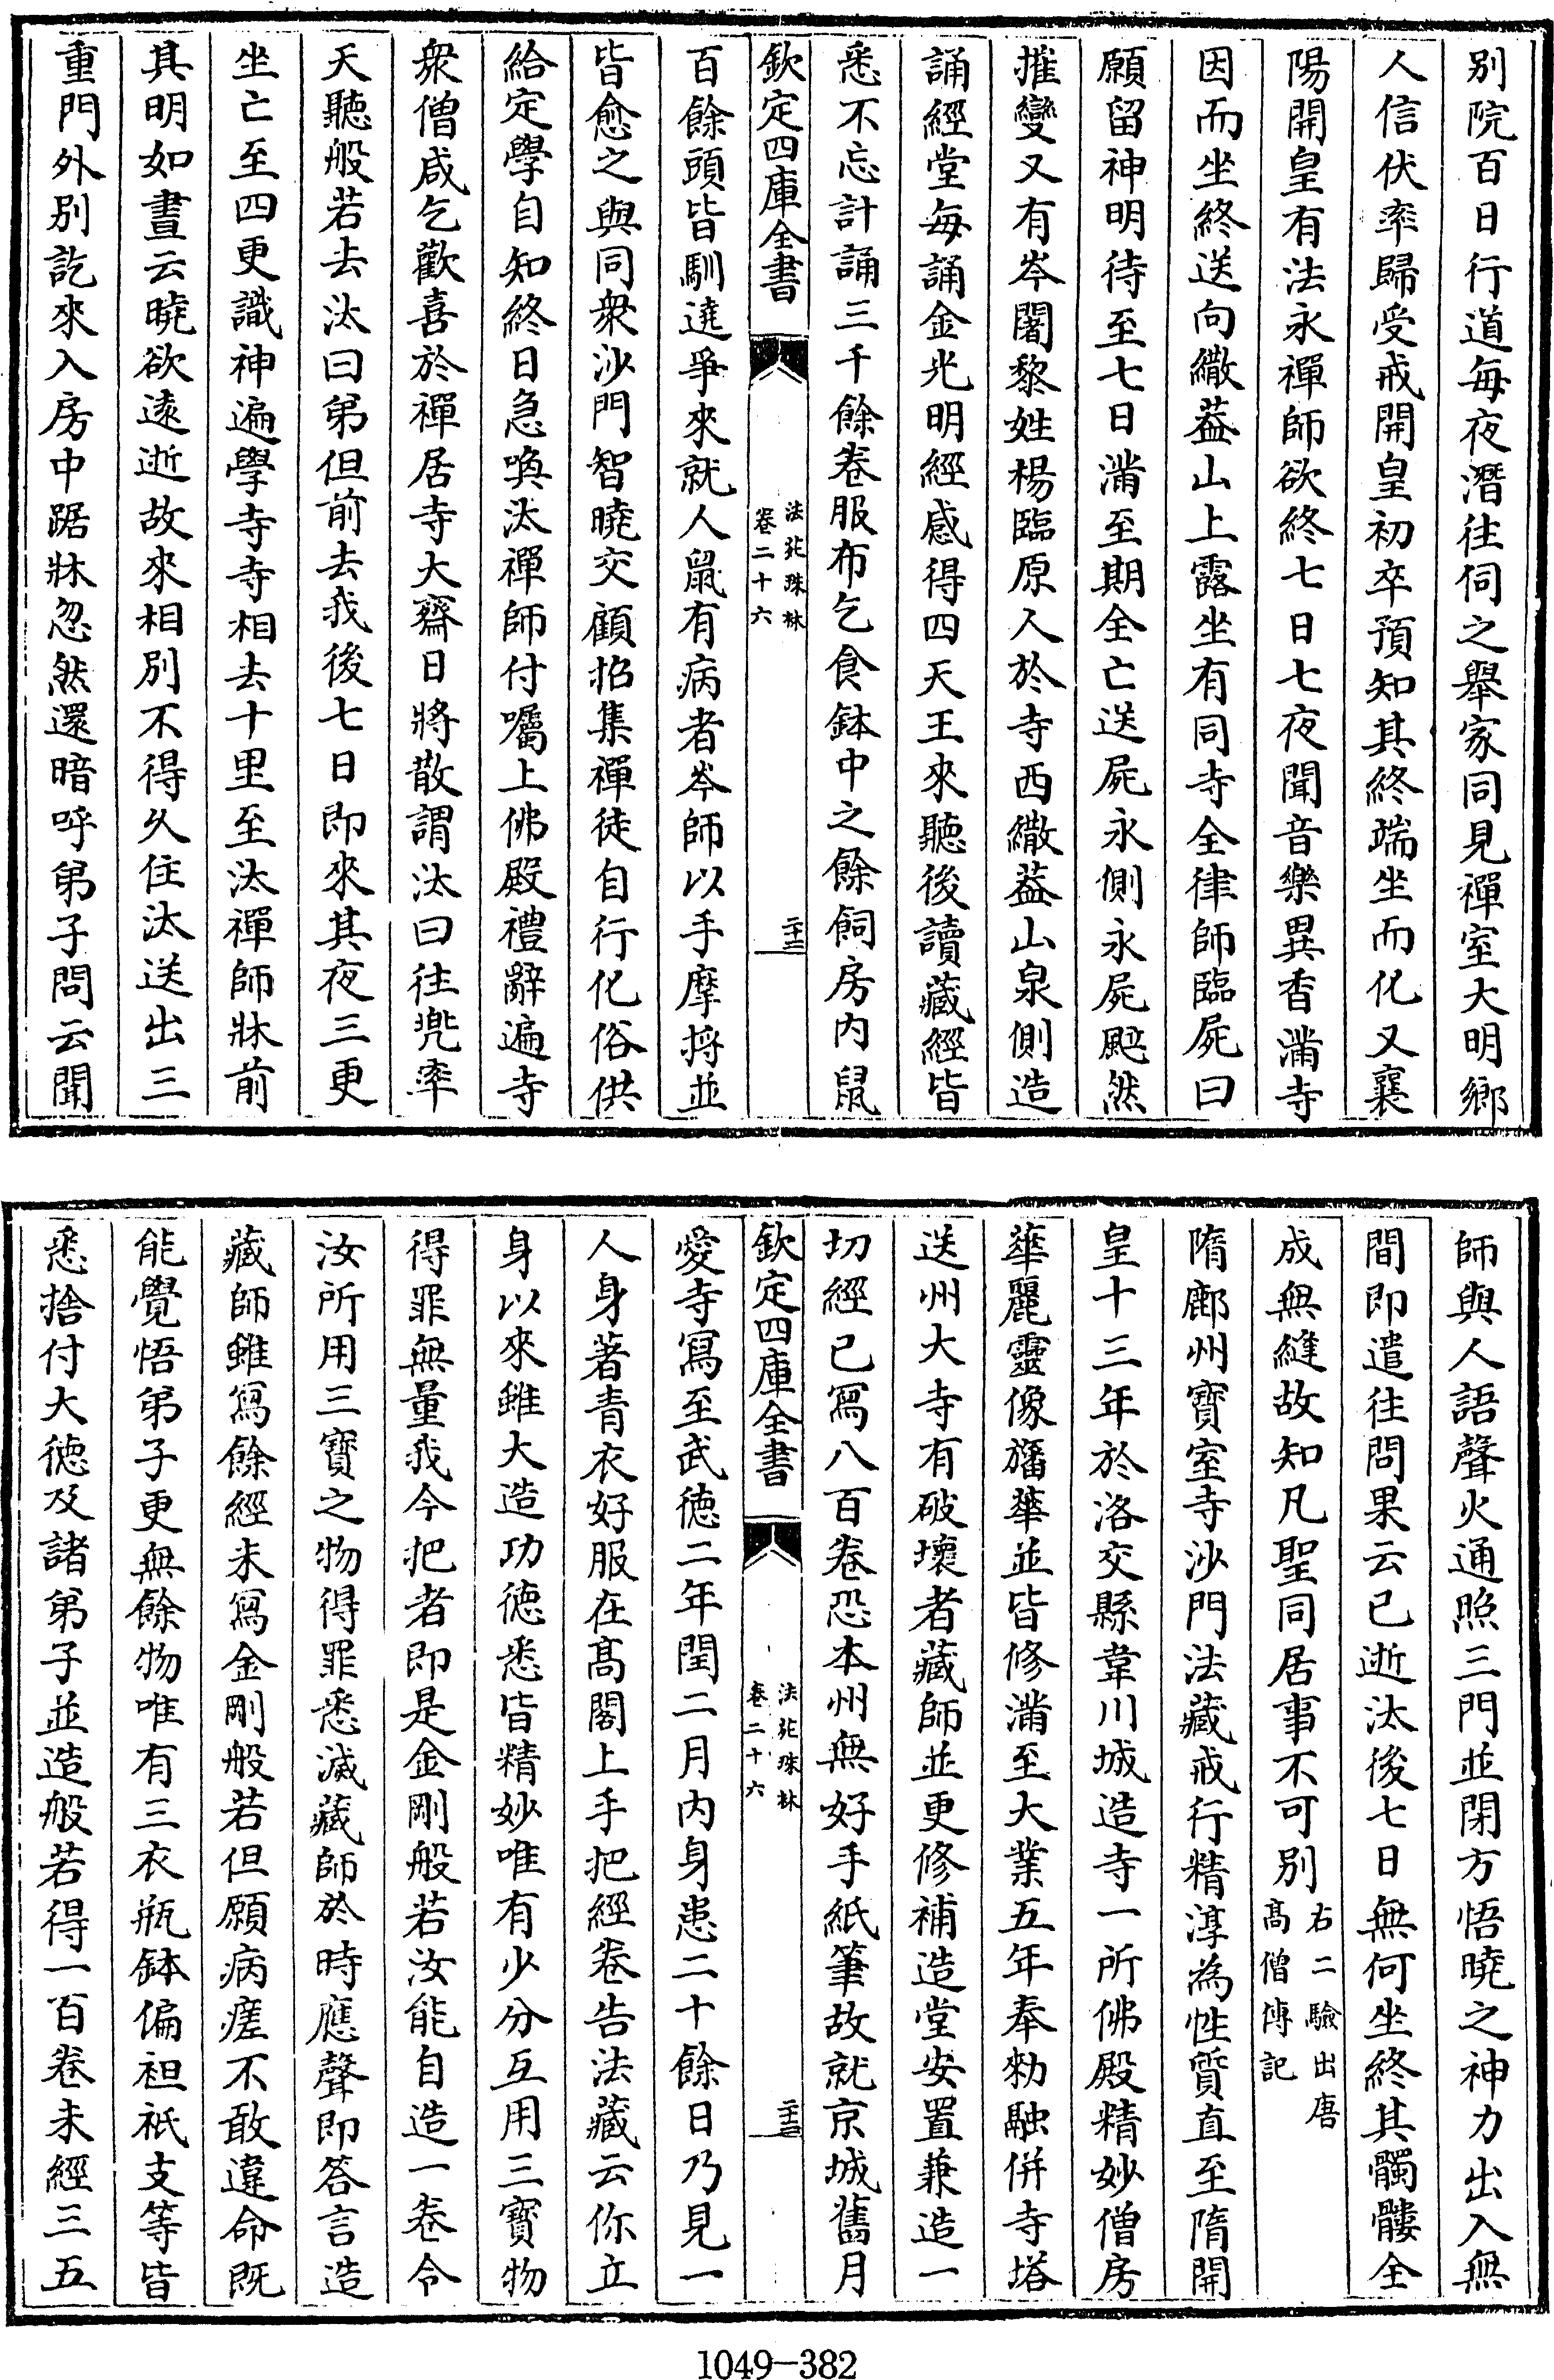 別院百日行道每夜潛往伺之舉家同見禪室大明鄉
人信伏率歸受戒開皇初卒預知其終端坐而化又襄
陽開皇有法永禪師欲終七日七夜聞音樂異香滿寺
因而坐終送向繖葢山上露坐有同寺全律師臨屍曰
願留神明待至七日滿至期全亡送屍永側永屍颯然
摧變又有岑闍黎姓楊臨原人於寺西繖葢山泉側造
誦經堂每誦金光明經感得四天王來聽後讀藏經皆
悉不忘計誦三千餘卷服布乞食鉢中之餘飼房内鼠
欽定四庫全書
法苑珠林
卷二十六
二十二
百餘頭皆馴遶爭來就人鼠有病者岑師以手摩捋並
皆愈之與同衆沙門智曉交顧招集禪徒自行化俗供
給定學自知終日急喚汰禪師付囑上佛殿禮辭遍寺
衆僧咸乞歡喜於禪居寺大齋日將散謂汰曰往兜率
天聽般若去汰曰弟但前去我後七日即來其夜三更
坐亡至四更識神遍學寺寺相去十里至汰禪師牀前
其明如晝云曉欲遠逝故來相別不得久住汰送出三
重門外別訖來入房中踞牀忽然還暗呼弟子問云聞
師與人語聲火通照三門並閉方悟曉之神力出入無
間即遣往問果云已逝汰後七日無何坐終其髑髏全
成無縫故知凡聖同居事不可別
右二驗出唐
高僧傳記
隋鄜州寶室寺沙門法藏戒行精淳為性質直至隋開
皇十三年於洛交縣韋川城造寺一所佛殿精妙僧房
華麗靈像旛華並皆修滿至大業五年奉勅融併寺塔
送州大寺有破壞者藏師並更修補造堂安置兼造一
切經已寫八百卷恐本州無好手紙筆故就京城舊月
欽定四庫全書
法苑珠林
卷二十六
二十三
愛寺寫至武德二年閏二月内身患二十餘日乃見一
人身著青衣好服在髙閣上手把經卷告法藏云你立
身以來雖大造功德悉皆精妙唯有少分互用三寶物
得罪無量我今把者即是金剛般若汝能自造一卷令
汝所用三寶之物得罪悉滅藏師於時應聲即答言造
藏師雖寫餘經未寫金剛般若但願病瘥不敢違命既
能覺悟弟子更無餘物唯有三衣瓶鉢偏袒祇支等皆
悉捨付大德及諸弟子並造般若得一百卷未經三五
1049-382